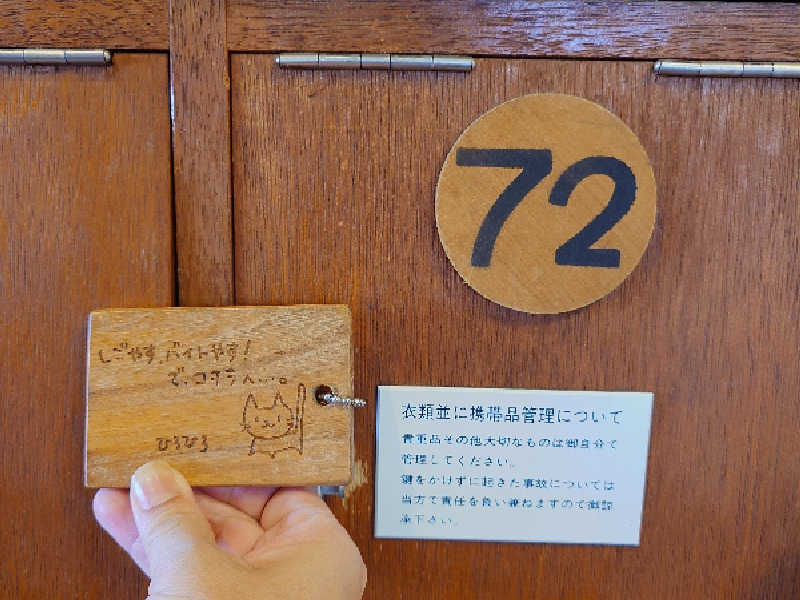 72
しごやす、バイトやす!
で、コチラへ…。
ひろひろ
衣類並に携帯品管理について
貴重品その他大切なものは御自分で
管理してください。
鍵をかけずに起きた事故については
当方で責任を負い兼ねますので御認
承下さい。